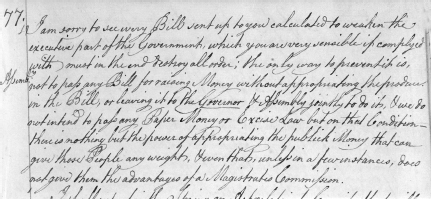 77.
I am sorry to see every Bill sent up to you calculated to weaken the
executive part of the Government, which you are very sensible if complyed
with must in the end destroy all order; the only way to prevent it is,
not to pass any Bill for raising Money without appropriating the produce
in the Bill, or leaving it to the Governor & Assembly jointly to do it, & we do
not intend to pass any Paper Money or Excise Law but on that Condition –
there is nothing but the power of appropriating the publick Money that can
give those People any weight, & even that, unless in a few instances, does
not give them the advantages of a Magistrates Commission.